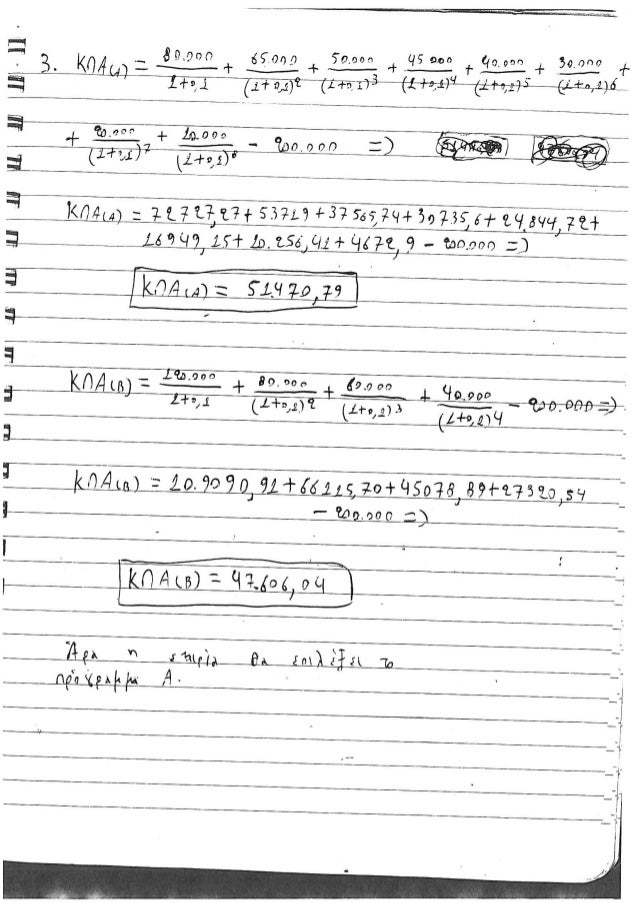 3. ΚΠΑ(Α) = 80.000/1+0,1 + 65.000/(1+0,1)2 + 50.000/(1+0,1)3 + 45 000/(1+0,1)4 + 40.000/(1+0,1)5 + 30.000/(1+0,1)6 +
+ 20.000/(1+0,1)7 + 10.000/(1+0,1)8 - 200.000 =>
ΚΠΑ(Α) = 72727,27 + 53719 + 37565,74 + 30735,6 + 24.844,72 +
16949,15 + 10.256,41 + 4672,9 - 200.000 =>
ΚΠΑ(Α) = 51.470,79
ΚΠΑ(Β) = 120.000/1+0,1 + 80.000/(1+0,1)2 + 60.000/(1+0,1)3 + 40.000/(1+0,1)4 - 200.000 =>
ΚΠΑ(Β) = 10.9090,91 + 66115,70 + 45078,89 + 27320,54
- 200.000 =>
ΚΠΑ(Β) = 47.606,04
Άρα η εταιρία θα επιλέξει το
πρόγραμμα Α.